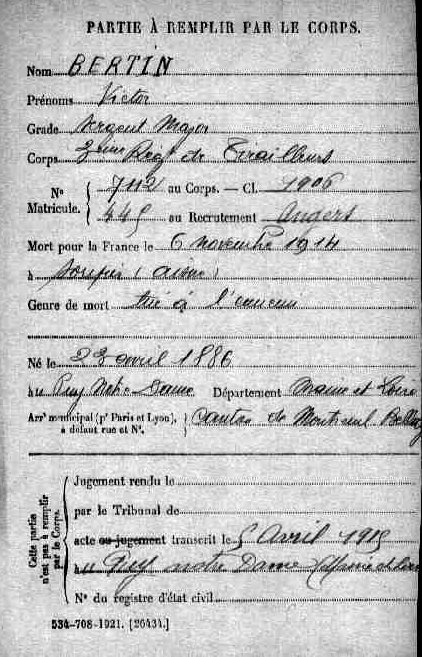 PARTIE À REMPLIR PAR LE CORPS.
Nom BERTIN
Prénoms Victor
Grade Sergent Major
Corps 3eme Reg de Tirailleurs
N° Matricule. 742 au Corps. — Cl. 1906
445 au Recrutement Angers
Mort pour la France le 6 novembre 1914
à Soupir (aisne)
Genre de mort tué à l'ennemi
Né le 23 avril 1886
au Puy Notre-Dame Département Maine et Loire
Arrt municipal (pr Paris et Lyon), à défaut rue et N°. Canton de Montreuil Bellay
Cette partie n'est pas à remplir par le Corps.
Jugement rendu le
par le Tribunal de
acte ou jugement transcrit le 5 Avril 1915
au Puy notre Dame (Maine et Loire
N° du registre d'état civil
534-708-1921. [26434.]